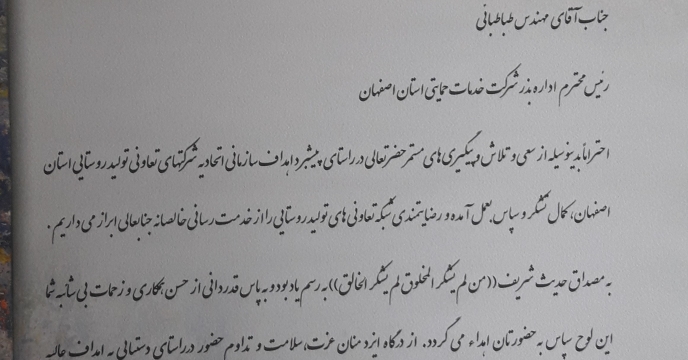 جناب آقای مهندس طباطبائی
رئیس محترم اداره بذر شرکت خدمات حمایتی استان اصفهان
احتراماً بدینوسیله از سعی و تلاش و پیگیری های مستمر حضرتعالی در راستای پیشبرد اهداف سازمانی اتحادیه شرکتهای تعاونی تولید روستایی استان
اصفهان، کمال تشکر و سپاس بعمل آمده و رضایتمندی شبکه تعاونی های تولید روستایی را از خدمت رسانی خالصانه جنابعالی ابراز می داریم .
به مصداق حدیث شریف ((من لم یشکر المخلوق لم یشکر الخالق)) به رسم یادبود و به پاس قدردانی از حسن همکاری و زحمات بی شائبه شما
این لوح سپاس به حضورتان اهداء می گردد. از درگاه ایزد منان عزت، سلامت و تداوم حضور در راستای دستیابی به اهداف عالیه